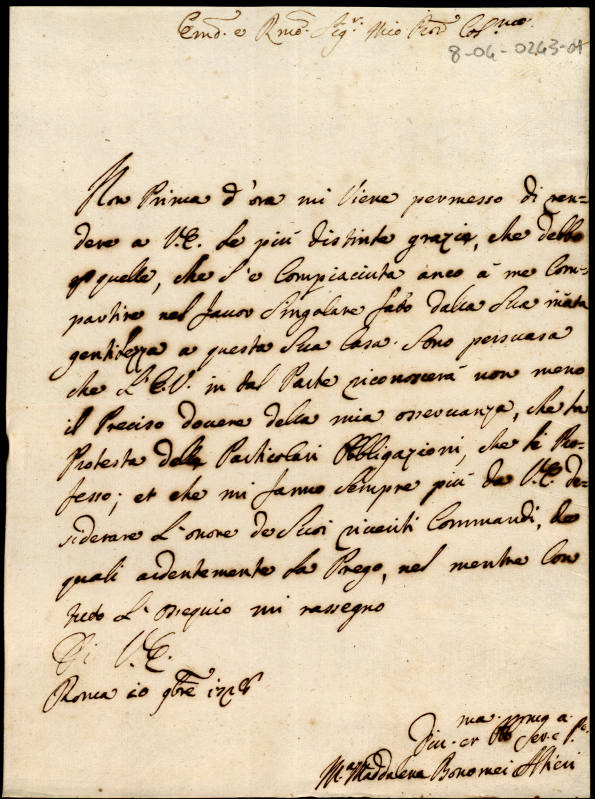 Em.º e R.mo Sig.r Mio P̃rõn Col.mo
8-04-0243-01
Non Prima d'ora mi viene permesso di ren=
dere a V.E. le più distinte grazie, che debbo
p quelle, che s'è Compiaciuta anco à me Com=
partire nel favor Singolare fatto dalla Sua in̄ata
gentilezza a questa Sua Casa. Sono persuasa
che L'E.V. in tal Parte riconoscerà non meno
il Preciso dovere della mia osservanza, che la
Protesta delle Particolari Obbligazioni, che le Pro=
fesso; et che mi fanno Sempre più da V.E. de=
siderare L'onore de Suoi riveriti Commandi, de
quali ardentemente La Prego, nel mentre Con
tutto L'ossequio mi rassegno
Di V.E.
Roma 20 9bre 1728
Div.ma et Obb.ma Ser.e P.
M.a Maddalena Boromei Altieri